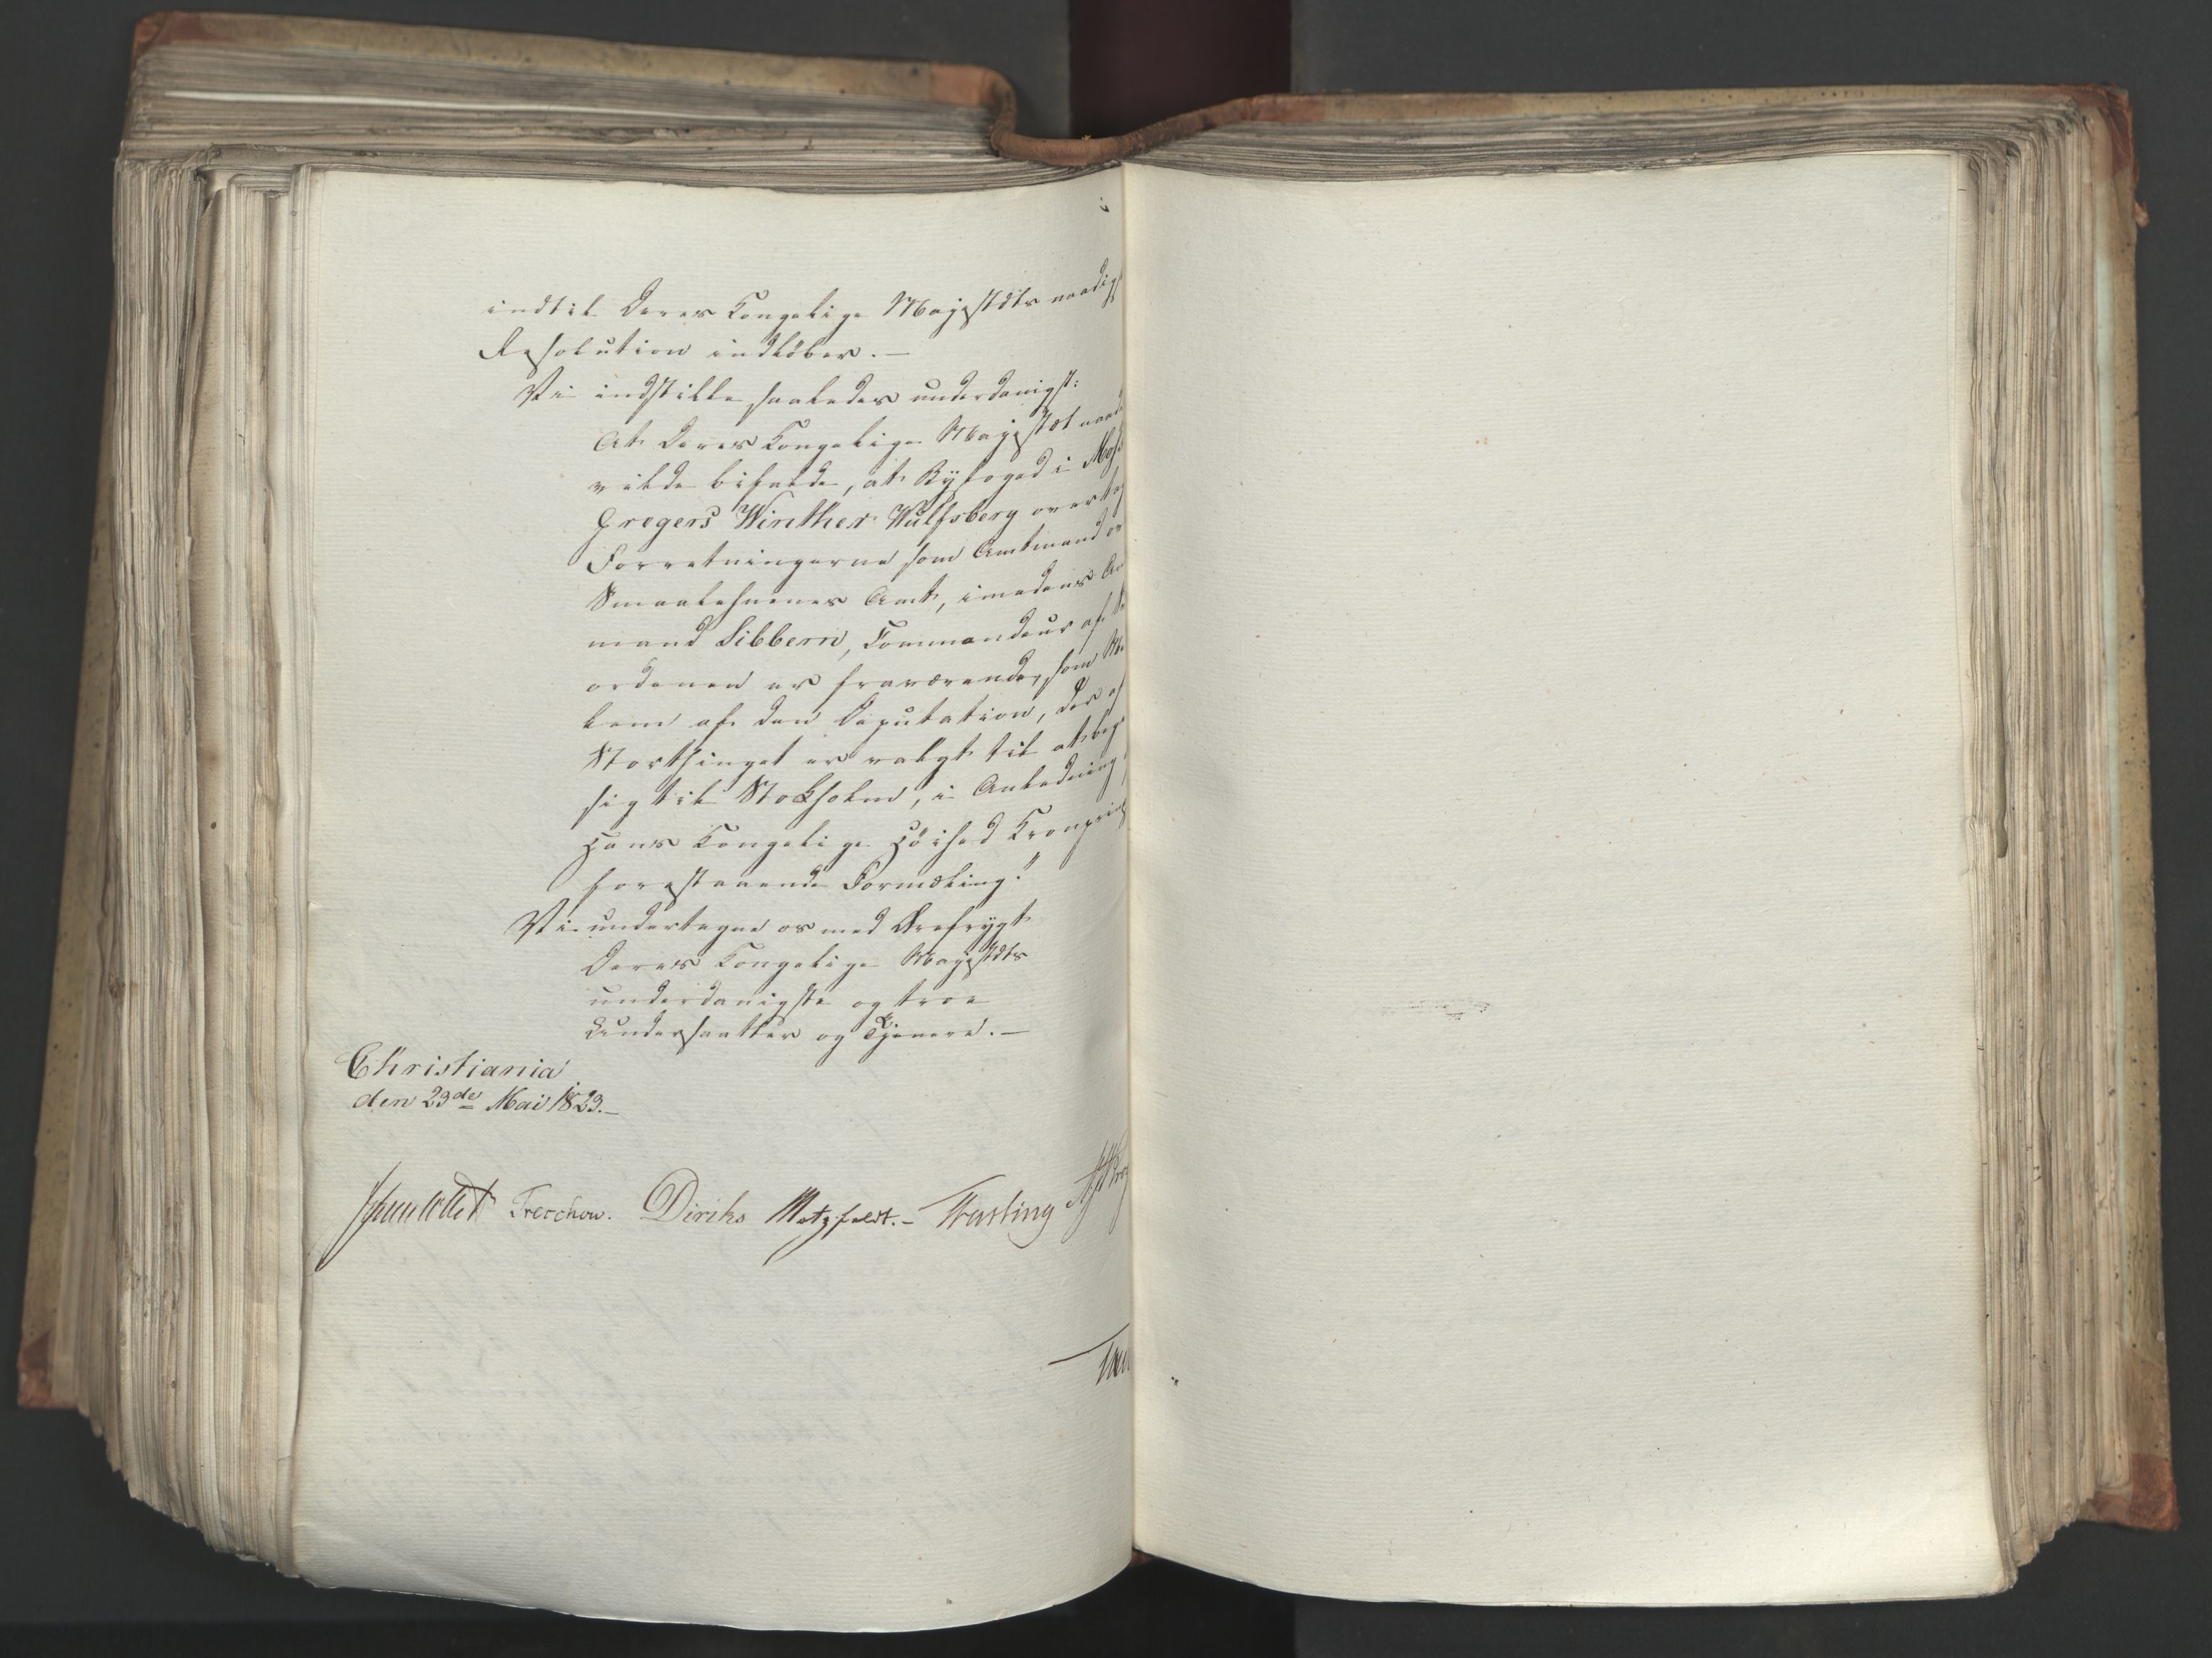 indtil Deres Kongelige Majestæts naadigst
Resolution indløber. —
Vi indstille saaledes underdanigst:
At Deres Kongelige Majestæt naad
vilde bifalde, at Byfoged i Moss
Gregers Winther Wulfsberg overtag
Forretningerne som Amtmand ov
Smaalehnenes Amt, imedens Am
mand Sibbern, Commandeur af
ordenen er fraværende, som Me
lem af den Deputation, der af
Storthinget er valgt til at beg
sig til Stokholm, i Anledning
Hans Kongelige Høihed Kronprinds
forestaaende Formæling."
Vi undertegne os med Ærefrygt
Deres Kongelige Majestæts
underdanigste og troe
Undersaatter og Tjenere. —
Christiania
den 23de Mai 1823. —
Treschow. Diriks Motzfeldt. — Fasting